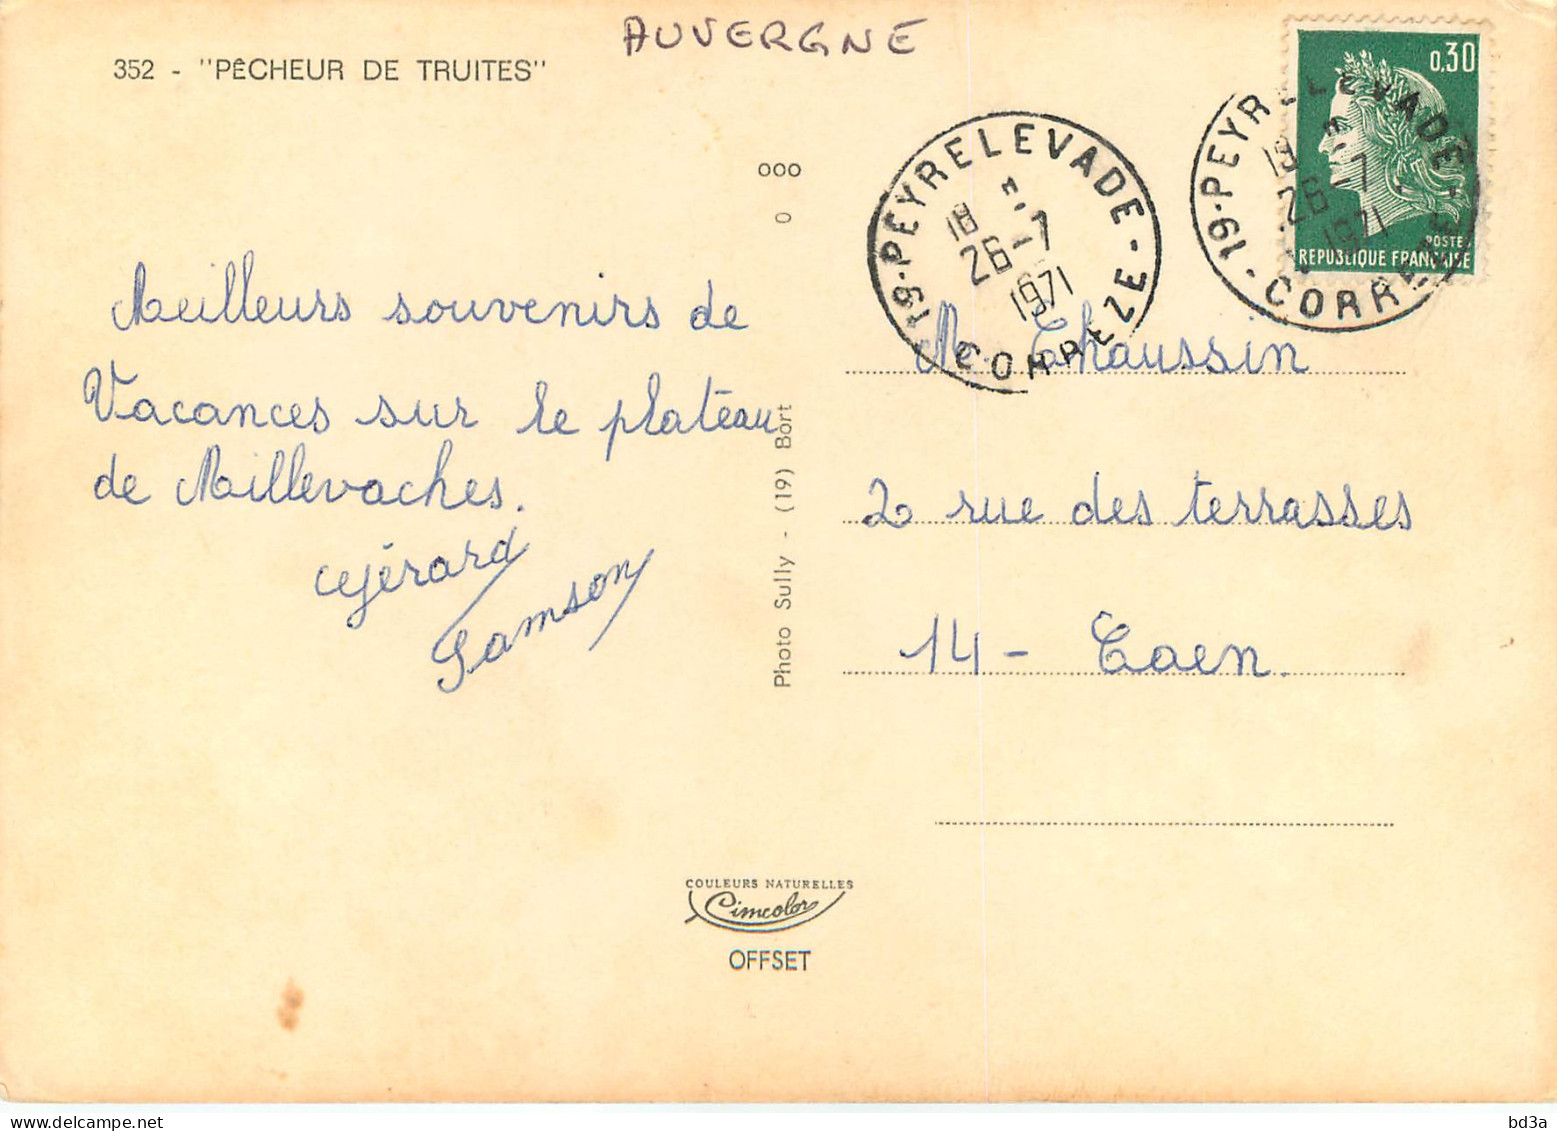 AUVERGNE
352 - "PÊCHEUR DE TRUITES"
0,30
POSTES
REPUBLIQUE FRANÇAISE
19 - PEYRELEVADE - CORREZE
18
26-7
1971
19 - PEYRELEVADE - CORREZE
18
26-7
1971
ooo
o
Meilleurs souvenirs de
Vacances sur le plateau
de Millevaches.
Gérard
Samson
Photo Sully - (19) Bort
M. Chaussin
2 rue des terrasses
14 - Caen.
COULEURS NATURELLES
Cimcolor
OFFSET
bd3a